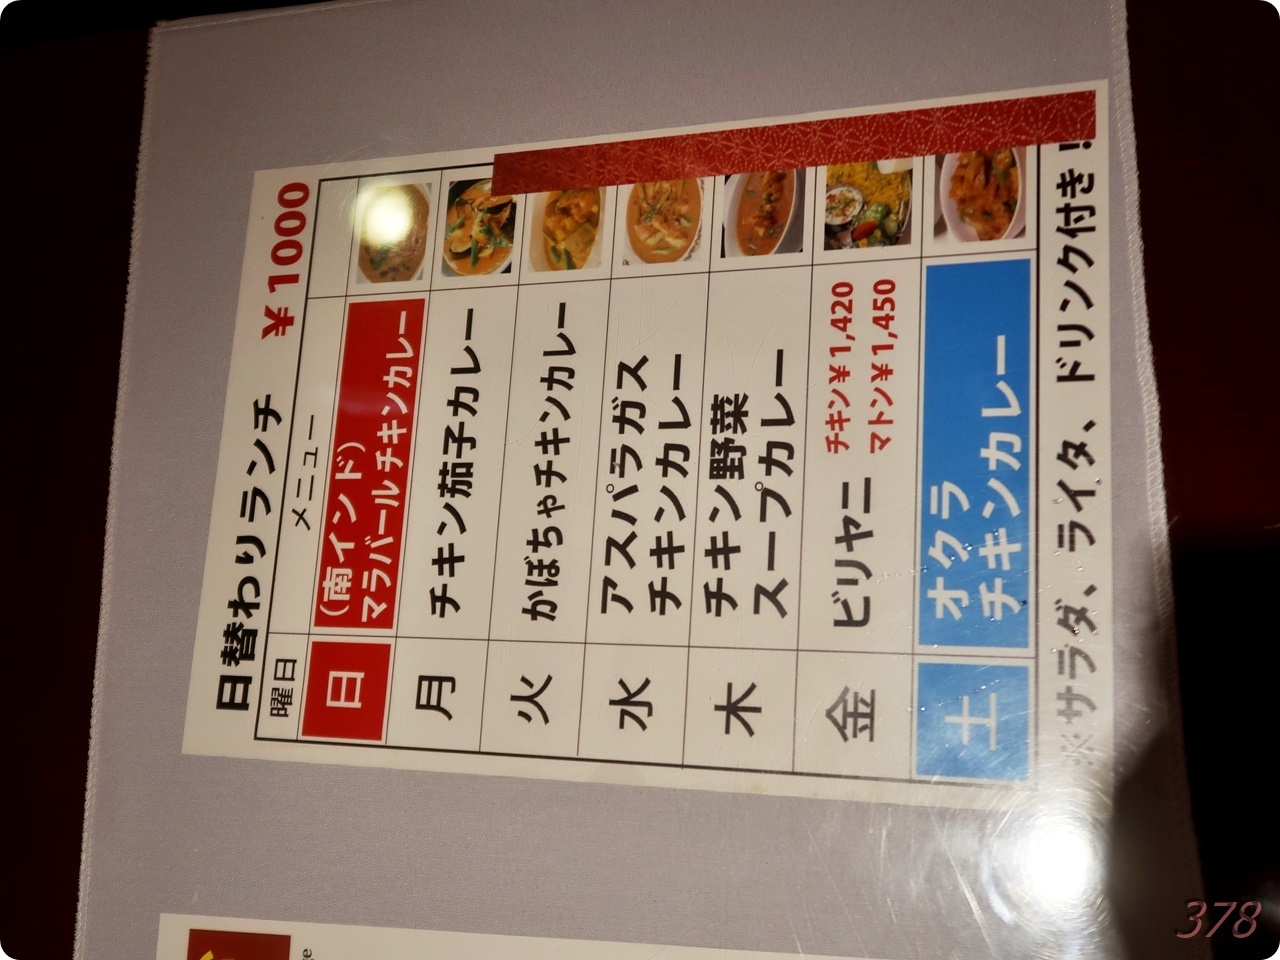 日替わりランチ ￥1000
曜日 メニュー
日 （南インド）
マラバールチキンカレー
月 チキン茄子カレー
火 かぼちゃチキンカレー
水 アスパラガス
チキンカレー
木 チキン野菜
スープカレー
金 ビリヤニ チキン￥1,420
マトン￥1,450
土 オクラ
チキンカレー
※サラダ、ライタ、ドリンク付き！
378